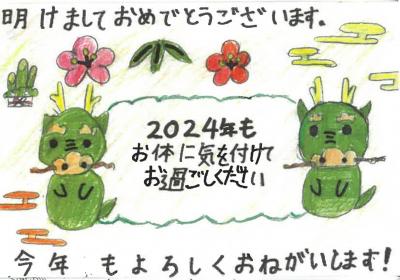 明けましておめでとうございます。
2024年も
お体に気を付けて
お過ごしください
今年もよろしくおねがいします!